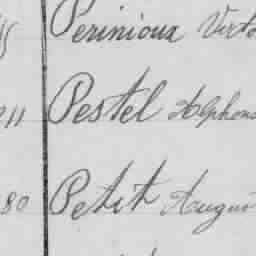 Perinioux Victo
11 Pestel Alphons
80 Petit August